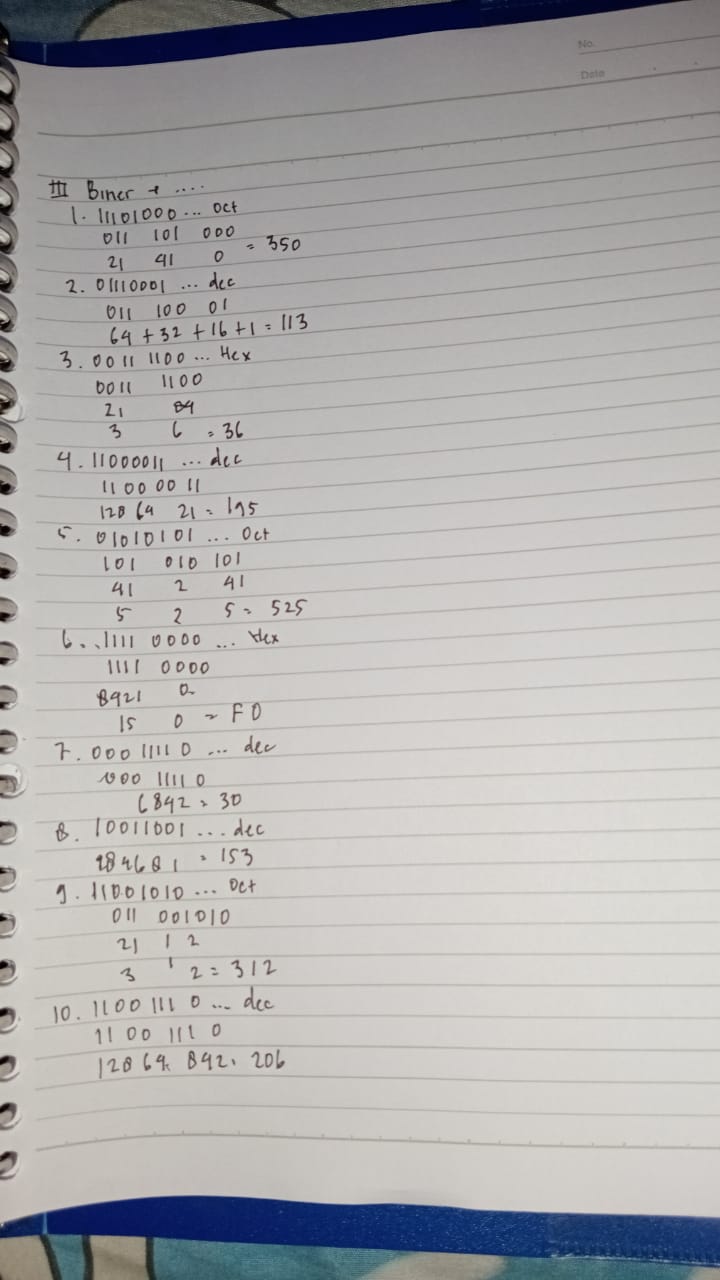 No.
Date
III Biner → ....
1. 11101000 ... Oct
011 101 000
21 41 0 = 350
2. 01110001 ... dec
011 100 01
64 + 32 + 16 + 1 = 113
3. 0011 1100 ... Hex
0011 1100
21 84
3 6 = 36
4. 11000011 ... dec
11 00 00 11
128 64 21 = 195
5. 01010101 ... Oct
101 010 101
41 2 41
5 2 5 = 525
6. 1111 0000 ... Hex
1111 0000
8421 0
15 0 = F0
7. 000 1111 0 ... dec
000 1111 0
16842 = 30
8. 10011001 ... dec
= 153
9. 11001010 ... Oct
011 001010
21 1 2
3 1 2 = 312
10. 1100 111 0 ... dec
11 00 111 0
128 64 842. 206